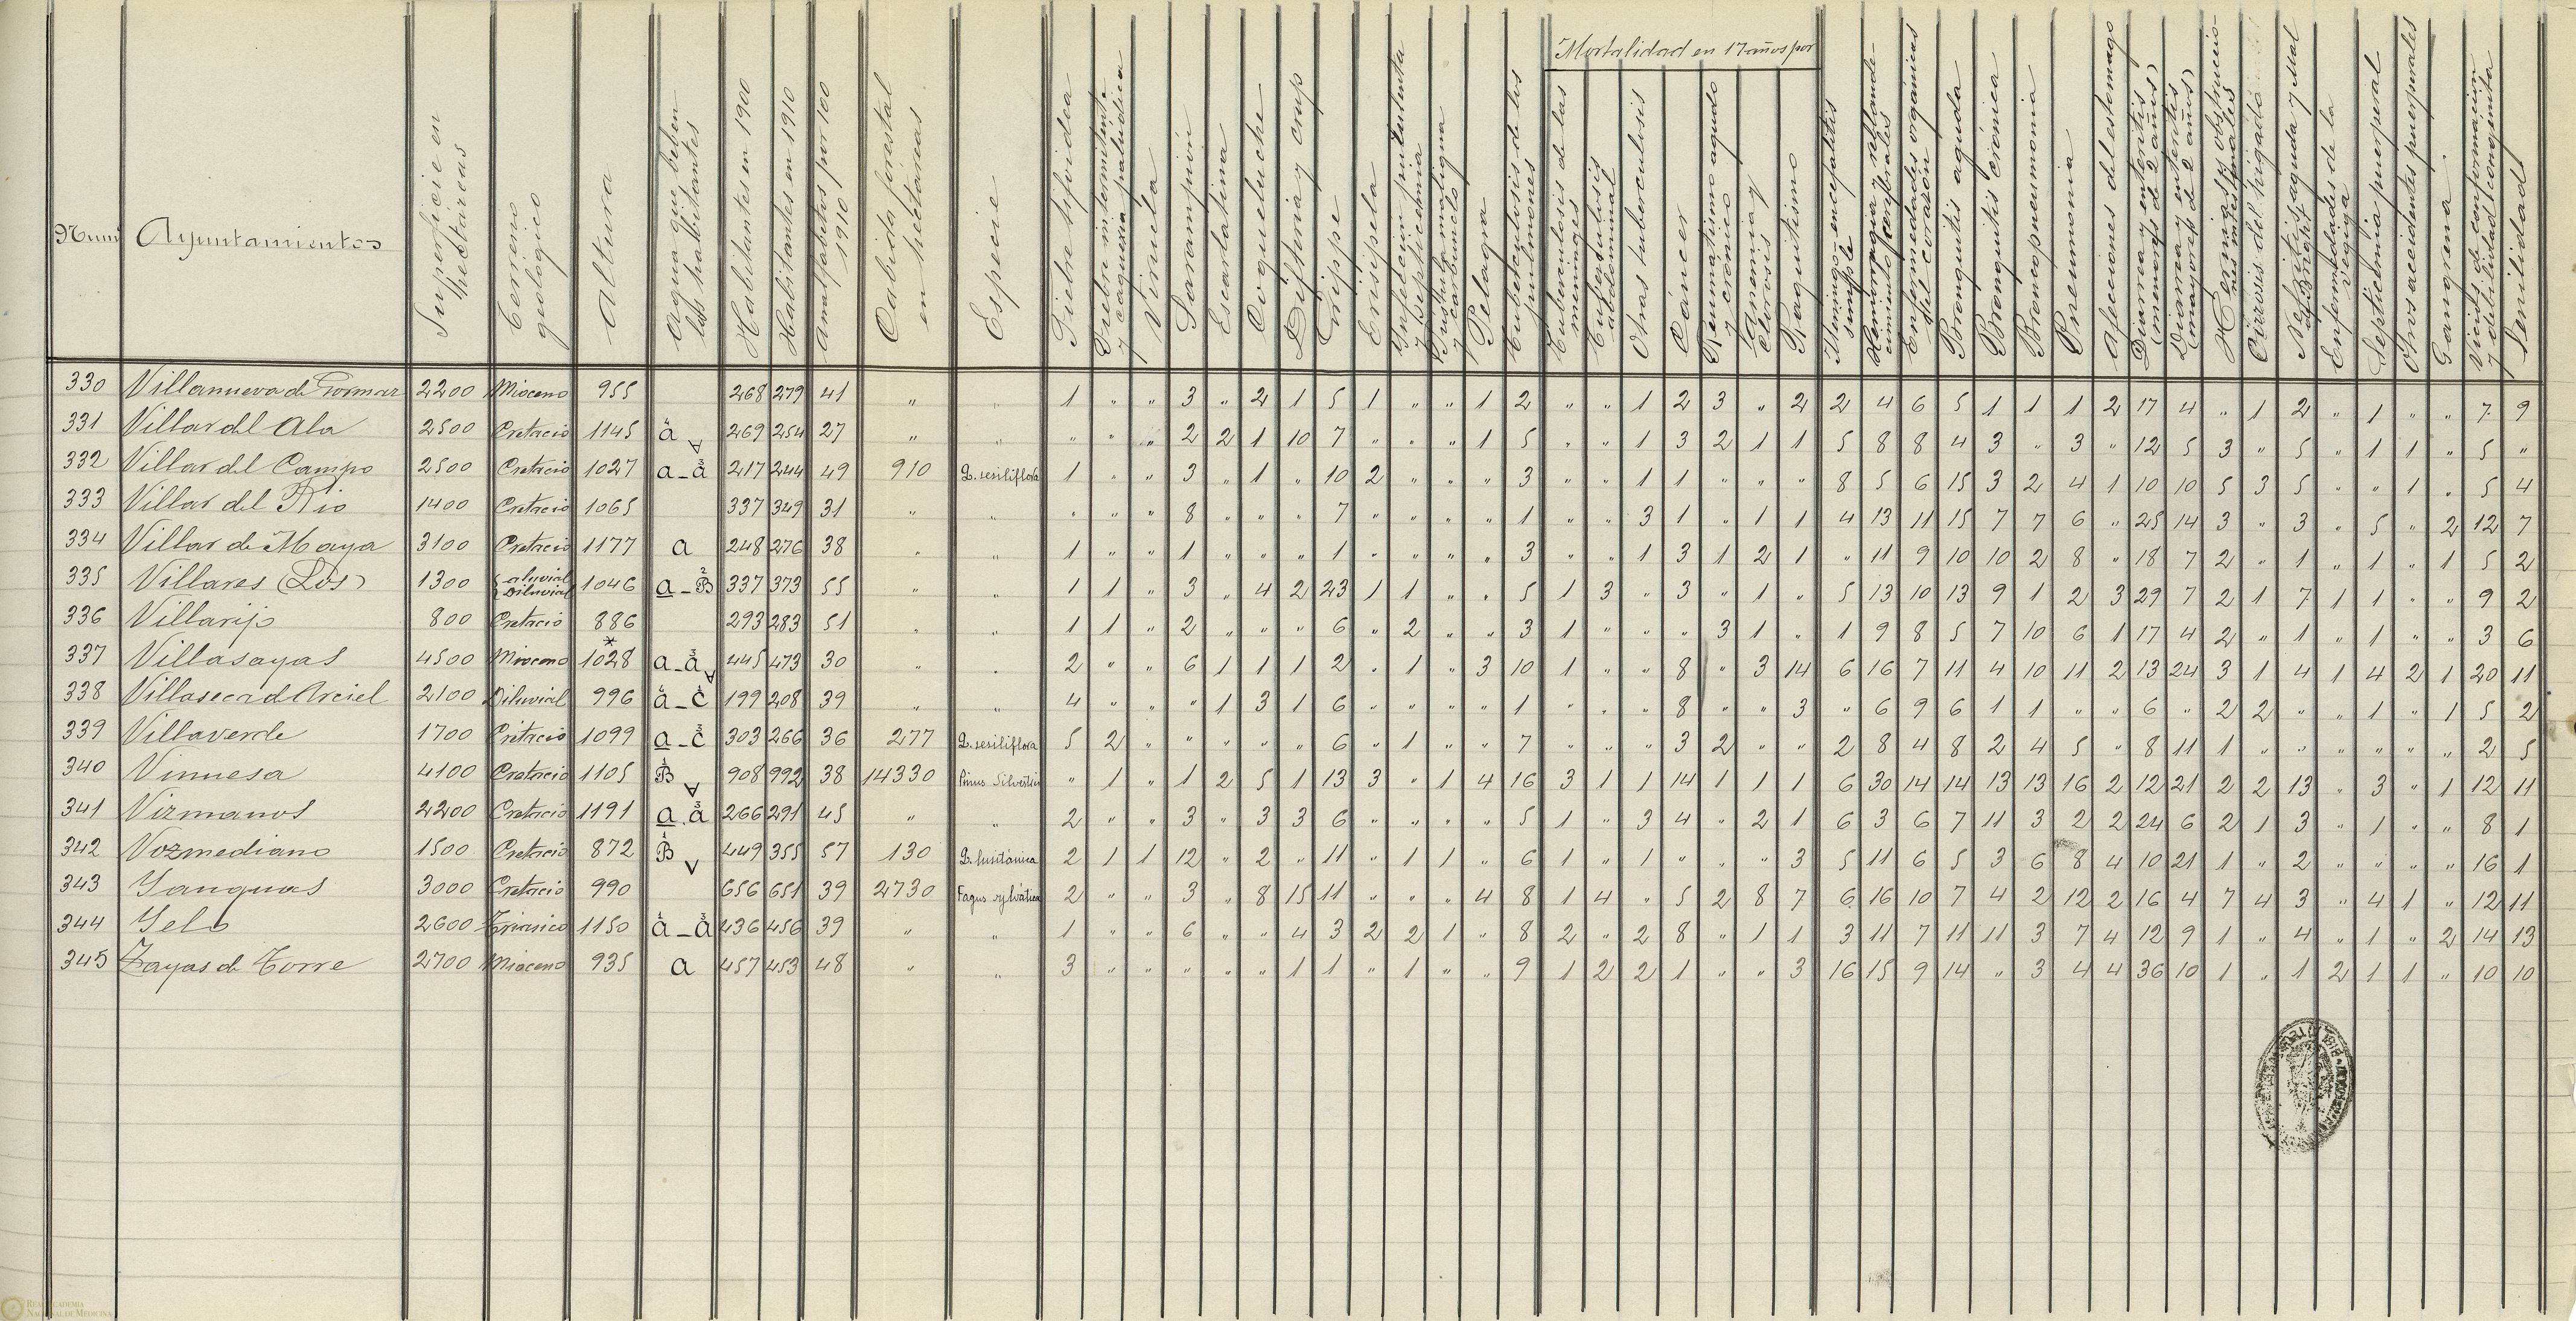 Mortalidad en 17 años por
Num Ayuntamientos Superficie en hectareas Terreno geologico Altura Agua que beben los habitantes Habitantes en 1900 Habitantes en 1910 Analfabetos por 100 1910 Cabida forestal en hectareas Especie Fiebre tifoidea Fiebre intermitente y caquexia palúdica Viruela Sarampion Escarlatina Coqueluche Difteria y crup Grippe Erisipela Infeccion purulenta y septicemia Pustula maligna y carbunclo Pelagra Tuberculosis de los pulmones Tuberculosis de las meninges Tuberculosis abdominal Otras tuberculosis Cáncer Reumatismo agudo y crónico Anemia y clorosis Raquitismo Meningo-encefalitis simple Hemorragia y reblandecimiento cerebrales Enfermedades orgánicas del corazón Bronquitis aguda Bronquitis crónica Broncopneumonia Pneumonia Afecciones del estomago Diarrea y enteritis (menores de 2 años) Diarrea y enteritis (mayores de 2 años) Hernias y obstrucciones intestinales Cirrosis del higado Nefritis aguda y Mal de Bright Enfermedades de la vegiga Septicemia puerperal Otros accidentes puerperales Gangrena Vicios de conformacion y debilidad congenita Senilidad
330 Villanueva de Gormaz 2200 Mioceno 955 268 279 41 " " 1 " " 3 " 2 1 5 1 " " 1 2 " " 1 2 3 " 2 2 4 6 5 1 1 1 2 17 4 " 1 2 " 1 " " 7 9
331 Villar del Ala 2500 Cretacio 1145 ä 269 254 27 " " " " " 2 2 1 10 7 " " " 1 5 " " 1 3 2 1 1 5 8 8 4 3 " 3 " 12 5 3 " 5 " 1 1 " 5 "
332 Villar del Campo 2500 Cretacio 1027 a-a³ 217 244 49 910 Q. sesiliflora 1 " " 3 " 1 " 10 2 " " " 3 " " 1 1 " " " 8 5 6 15 3 2 4 1 10 10 5 3 5 " " 1 " 5 4
333 Villar del Rio 1400 Cretacio 1065 337 349 31 " " " " " 8 " " " 7 " " " " 1 " " 3 1 " 1 1 4 13 11 15 7 7 6 " 25 14 3 " 3 " 5 " 2 12 7
334 Villar de Maya 3100 Cretacio 1177 a 248 276 38 " " 1 " " 1 " " " 1 " " " " 3 " " 1 3 1 2 1 " 11 9 10 10 2 8 " 18 7 2 " 1 " 1 " 1 5 2
335 Villares (Los) 1300 {aluvial Diluvial 1046 a-B² 337 373 55 " " 1 1 " 3 " 4 2 23 1 1 " " 5 1 3 " 3 " 1 " 5 13 10 13 9 1 2 3 29 7 2 1 7 1 1 " " 9 2
336 Villarijo 800 Cretacio 886 293 283 51 " " 1 1 " 2 " " " 6 " 2 " " 3 1 " " " 3 1 " 1 9 8 5 7 10 6 1 17 4 2 " 1 " 1 " " 3 6
337 Villasayas 4500 Mioceno 1028* a-a³ 445 473 30 " " 2 " " 6 1 1 1 2 " 1 " 3 10 1 " " 8 " 3 14 6 16 7 11 4 10 11 2 13 24 3 1 4 1 4 2 1 20 11
338 Villaseca d Arciel 2100 Diluvial 996 ä-c¹ 199 208 39 " " 4 " " " 1 3 1 6 " " " " 1 " " " 8 " " 3 " 6 9 6 1 1 " " 6 " 2 2 " " 1 " 1 5 2
339 Villaverde 1700 Cretacio 1099 a-c³ 303 266 36 277 Q. sesiliflora 5 2 " " " " " 6 " 1 " " 7 " " " 3 2 " " 2 8 4 8 2 4 5 " 8 11 1 " " " " " " 2 5
340 Vinuesa 4100 Cretacio 1105 B¹ 908 992 38 14330 Pinus Silvestris " 1 " 1 2 5 1 13 3 " 1 4 16 3 1 1 14 1 1 1 6 30 14 14 13 13 16 2 12 21 2 2 13 " 3 " 1 12 11
341 Vizmanos 2200 Cretacio 1191 a.a³ 266 291 45 " " 2 " " 3 " 3 3 6 " " " " 5 1 " 3 4 " 2 1 6 3 6 7 11 3 2 2 24 6 2 1 3 " 1 " " 8 1
342 Vozmediano 1500 Cretacio 872 B¹ 449 355 57 130 Q. lusitánica 2 1 1 12 " 2 " 11 " 1 1 " 6 1 " 1 " " " 3 5 11 6 5 3 6 8 4 10 21 1 " 2 " " " " 16 1
343 Yanguas 3000 Cretacio 990 656 651 39 2730 Fagus sylvática 2 " " 3 " 8 15 11 " " " 4 8 1 4 " 5 2 8 7 6 16 10 7 4 2 12 2 16 4 7 4 3 " 4 1 " 12 11
344 Yelo 2600 Triasico 1150 a¹-a³ 436 456 39 " " 1 " " 6 " " 4 3 2 2 1 " 8 2 " 2 8 " 1 1 3 11 7 11 11 3 7 4 12 9 1 " 4 " 1 " 2 14 13
345 Zayas de Torre 2700 Mioceno 935 a 457 453 48 " " 3 " " " " " 1 1 " 1 " " 9 1 2 2 1 " " 3 16 15 9 14 " 3 4 4 36 10 1 " 1 2 1 1 " 10 10
REAL ACADEMIA
NACIONAL DE MEDICINA